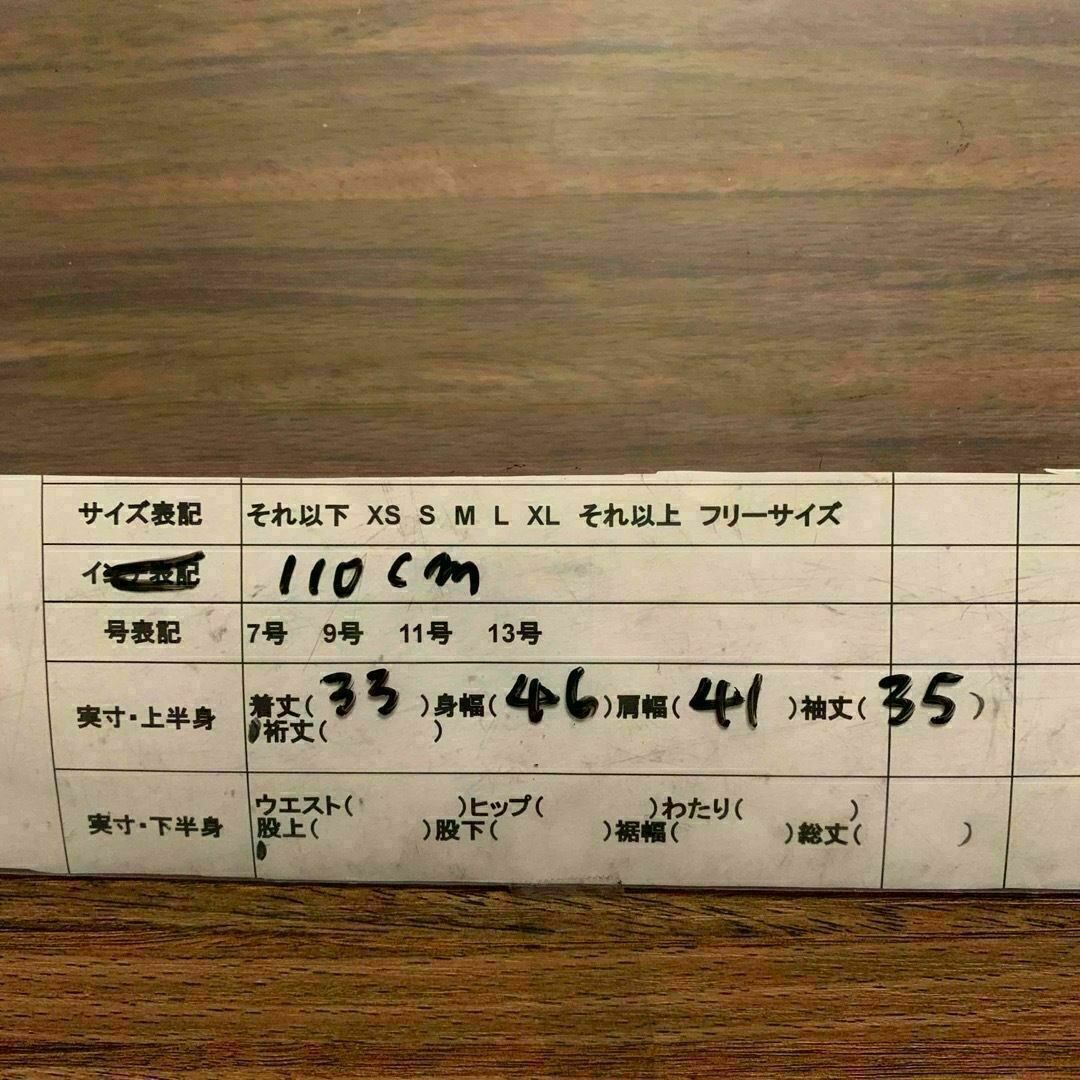 サイズ表記 それ以下 XS S M L XL それ以上 フリーサイズ
表記 110cm
号表記 7号 9号 11号 13号
実寸・上半身 着丈(33)身幅(46)肩幅(41)袖丈(35)
裄丈( )
実寸・下半身 ウエスト( )ヒップ( )わたり( )
股上( )股下( )裾幅( )総丈( )